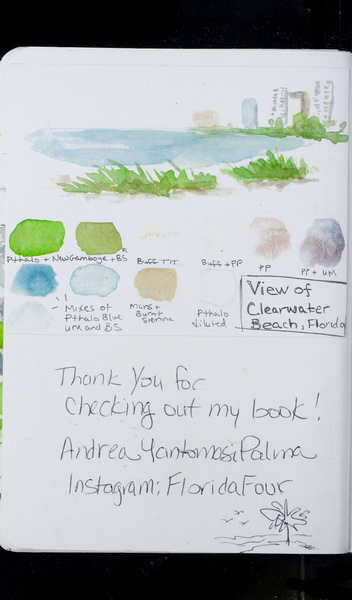 Pthalo + New Gamboge + BS
Buff TIT
Buff + PP
PP
PP + UM
Mixes of
Pthalo Blue
UM and BS
Burnt
Sienna
Pthalo
diluted
View of
Clearwater
Beach, Florida
Thank You for
Checking out my book!
Andrea YantomasiPalma
Instagram: FloridaFour